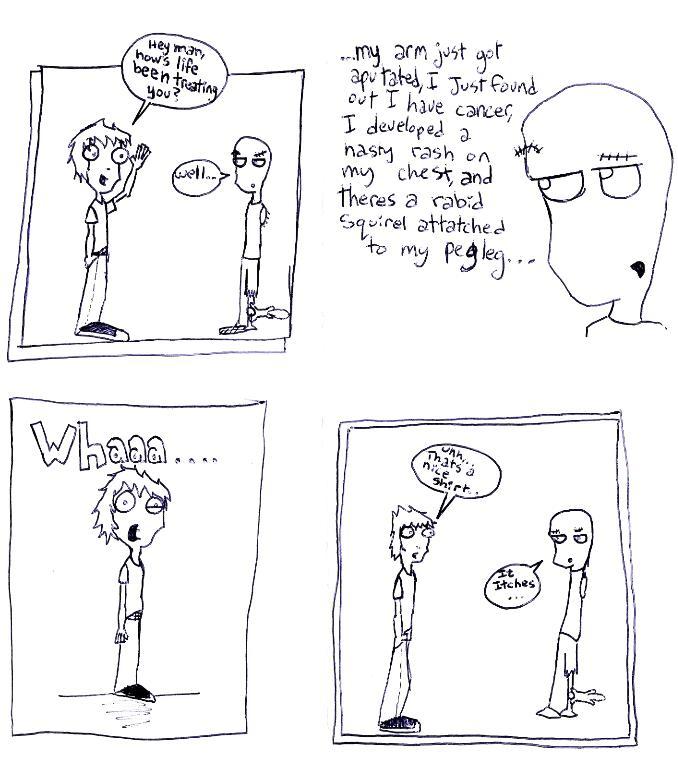 Hey man,
how's life
been treating
you?
well...
...my arm just got
aputated, I Just found
out I have cancer,
I developed a
nasty rash on
my chest, and
theres a rabid
squirel attatched
to my pegleg...
Whaaa....
Uhh...
Thats a
nice
shirt..
It
Itches
...